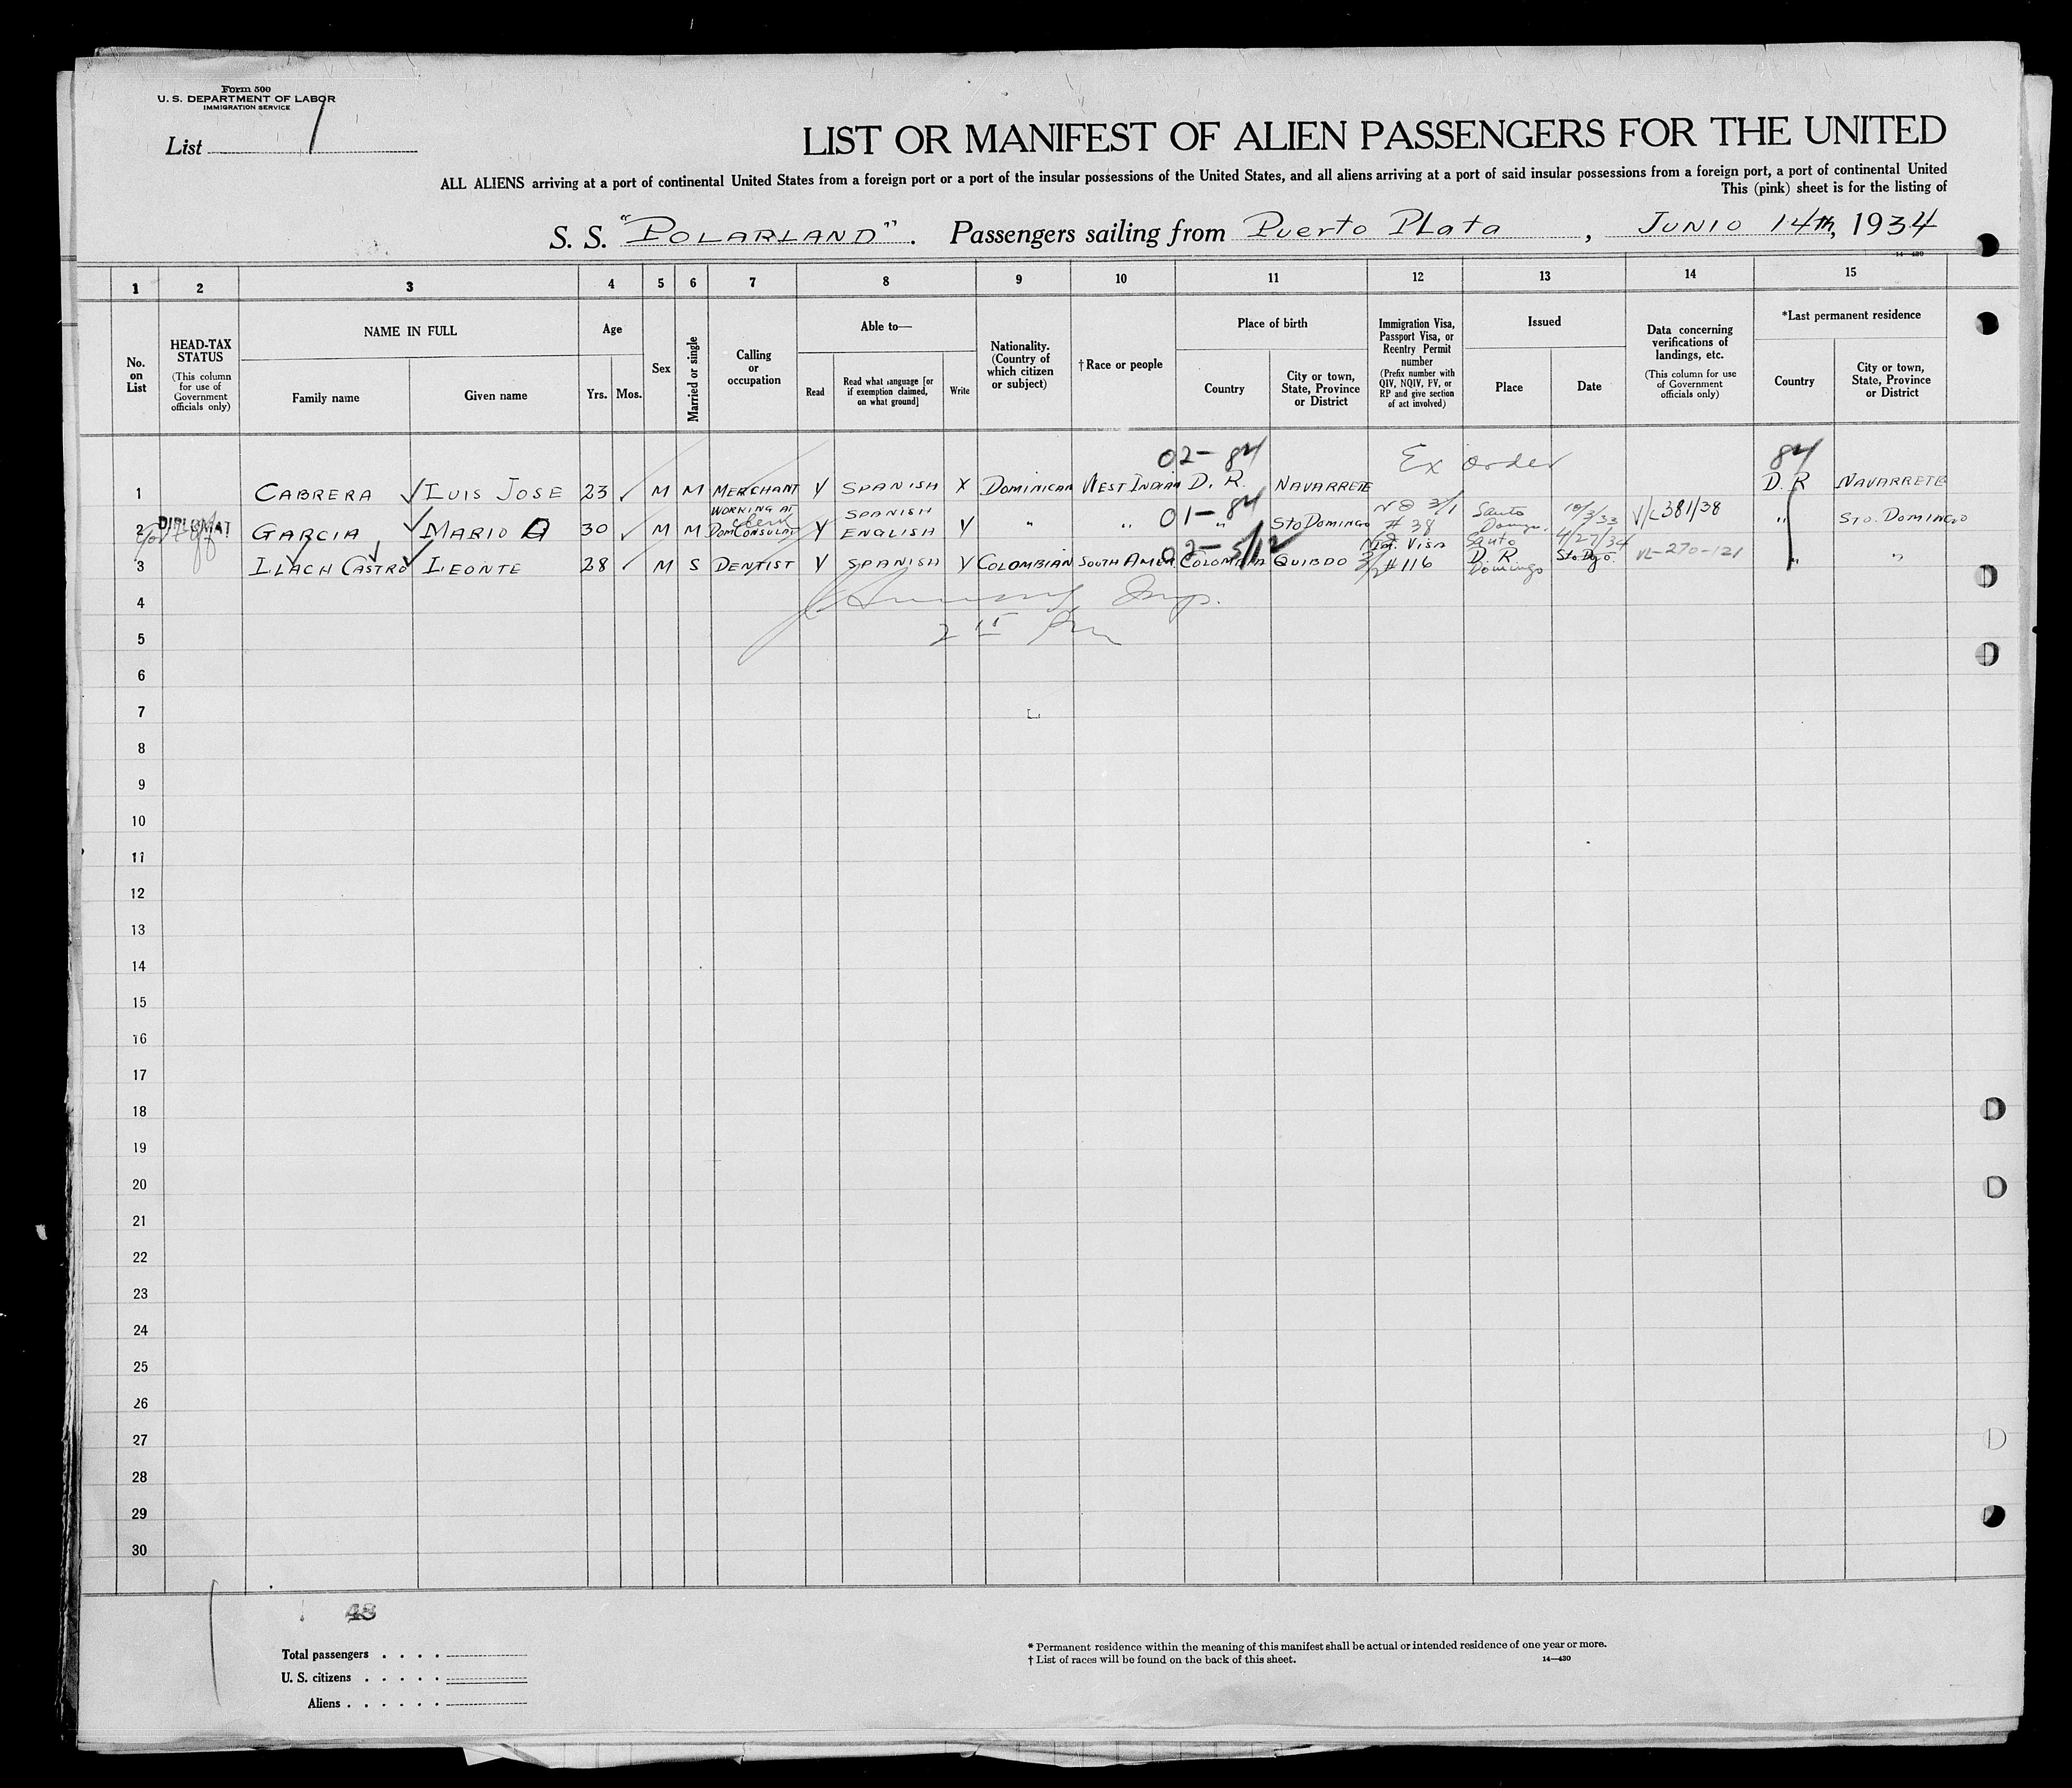 Form 500
U. S. DEPARTMENT OF LABOR
IMMIGRATION SERVICE
List 1
LIST OR MANIFEST OF ALIEN PASSENGERS FOR THE UNITED
ALL ALIENS arriving at a port of continental United States from a foreign port or a port of the insular possessions of the United States, and all aliens arriving at a port of said insular possessions from a foreign port, a port of continental United
This (pink) sheet is for the listing of
S. S. "POLARLAND". Passengers sailing from Puerto Plata, JUNIO 14th, 1934
14—430
1 2 3 4 5 6 7 8 9 10 11 12 13 14 15
No. on List
HEAD-TAX STATUS (This column for use of Government officials only)
NAME IN FULL
Family name
Given name
Age
Yrs.
Mos.
Sex
Married or single
Calling or occupation
Able to—
Read
Read what language [or if exemption claimed, on what ground]
Write
Nationality. (Country of which citizen or subject)
†Race or people
Place of birth
Country
City or town, State, Province or District
Immigration Visa, Passport Visa, or Reentry Permit number (Prefix number with QIV, NQIV, PV, or RP and give section of act involved)
Issued
Place
Date
Data concerning verifications of landings, etc. (This column for use of Government officials only)
*Last permanent residence
Country
City or town, State, Province or District
02-84 Ex order 84
1 CABRERA LUIS JOSE 23 M M MERCHANT Y SPANISH Y DOMINICAN WEST INDIAN D. R. NAVARRETE D. R NAVARRETE
WORKING AT clerk SPANISH 01-84 3/1 Santo 10/3/33 V/L381/38
2 DIPLOMAT GARCIA MARIO Q 30 M M DOM CONSULAT Y ENGLISH Y " " " STO DOMINGO #38 Domgo. " STO. DOMINGO
02-5/12 Visa Santo 4/27/34
3 LLACH CASTRO LEONTE 28 M S DENTIST Y SPANISH Y COLOMBIAN SOUTH AMER COLOMBIA QUIBDO 3/2 #116 D. R. Domingo Sto. Dgo. VL-270-121 " "
4
Insp.
5
6
7
8
9
10
11
12
13
14
15
16
17
18
19
20
21
22
23
24
25
26
27
28
29
30
43
Total passengers . . . .
U. S. citizens . . . . .
Aliens . . . . . .
* Permanent residence within the meaning of this manifest shall be actual or intended residence of one year or more.
† List of races will be found on the back of this sheet.
14—430